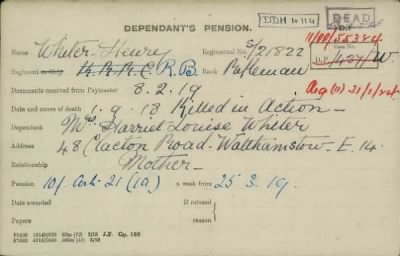 DEPENDANT'S PENSION.
DEAD
11/DD/55384
Name Whiter - Henry Regimental No. S/21822
Regiment K.R.R.C. R.B. Rank Rifleman
Documents received from Paymaster 8.2.19
Date and cause of death 1.9.18 Killed in Action -
Dependant Mrs Harriet Louise Whiter
Address 48 Clacton Road. Walthamstow. E.14.
Relationship Mother -
Pension 10/- Arti- 21 (1a) a week from 25.3.19.
Date awarded If refused
Papers reason
J.P. Gp. 128